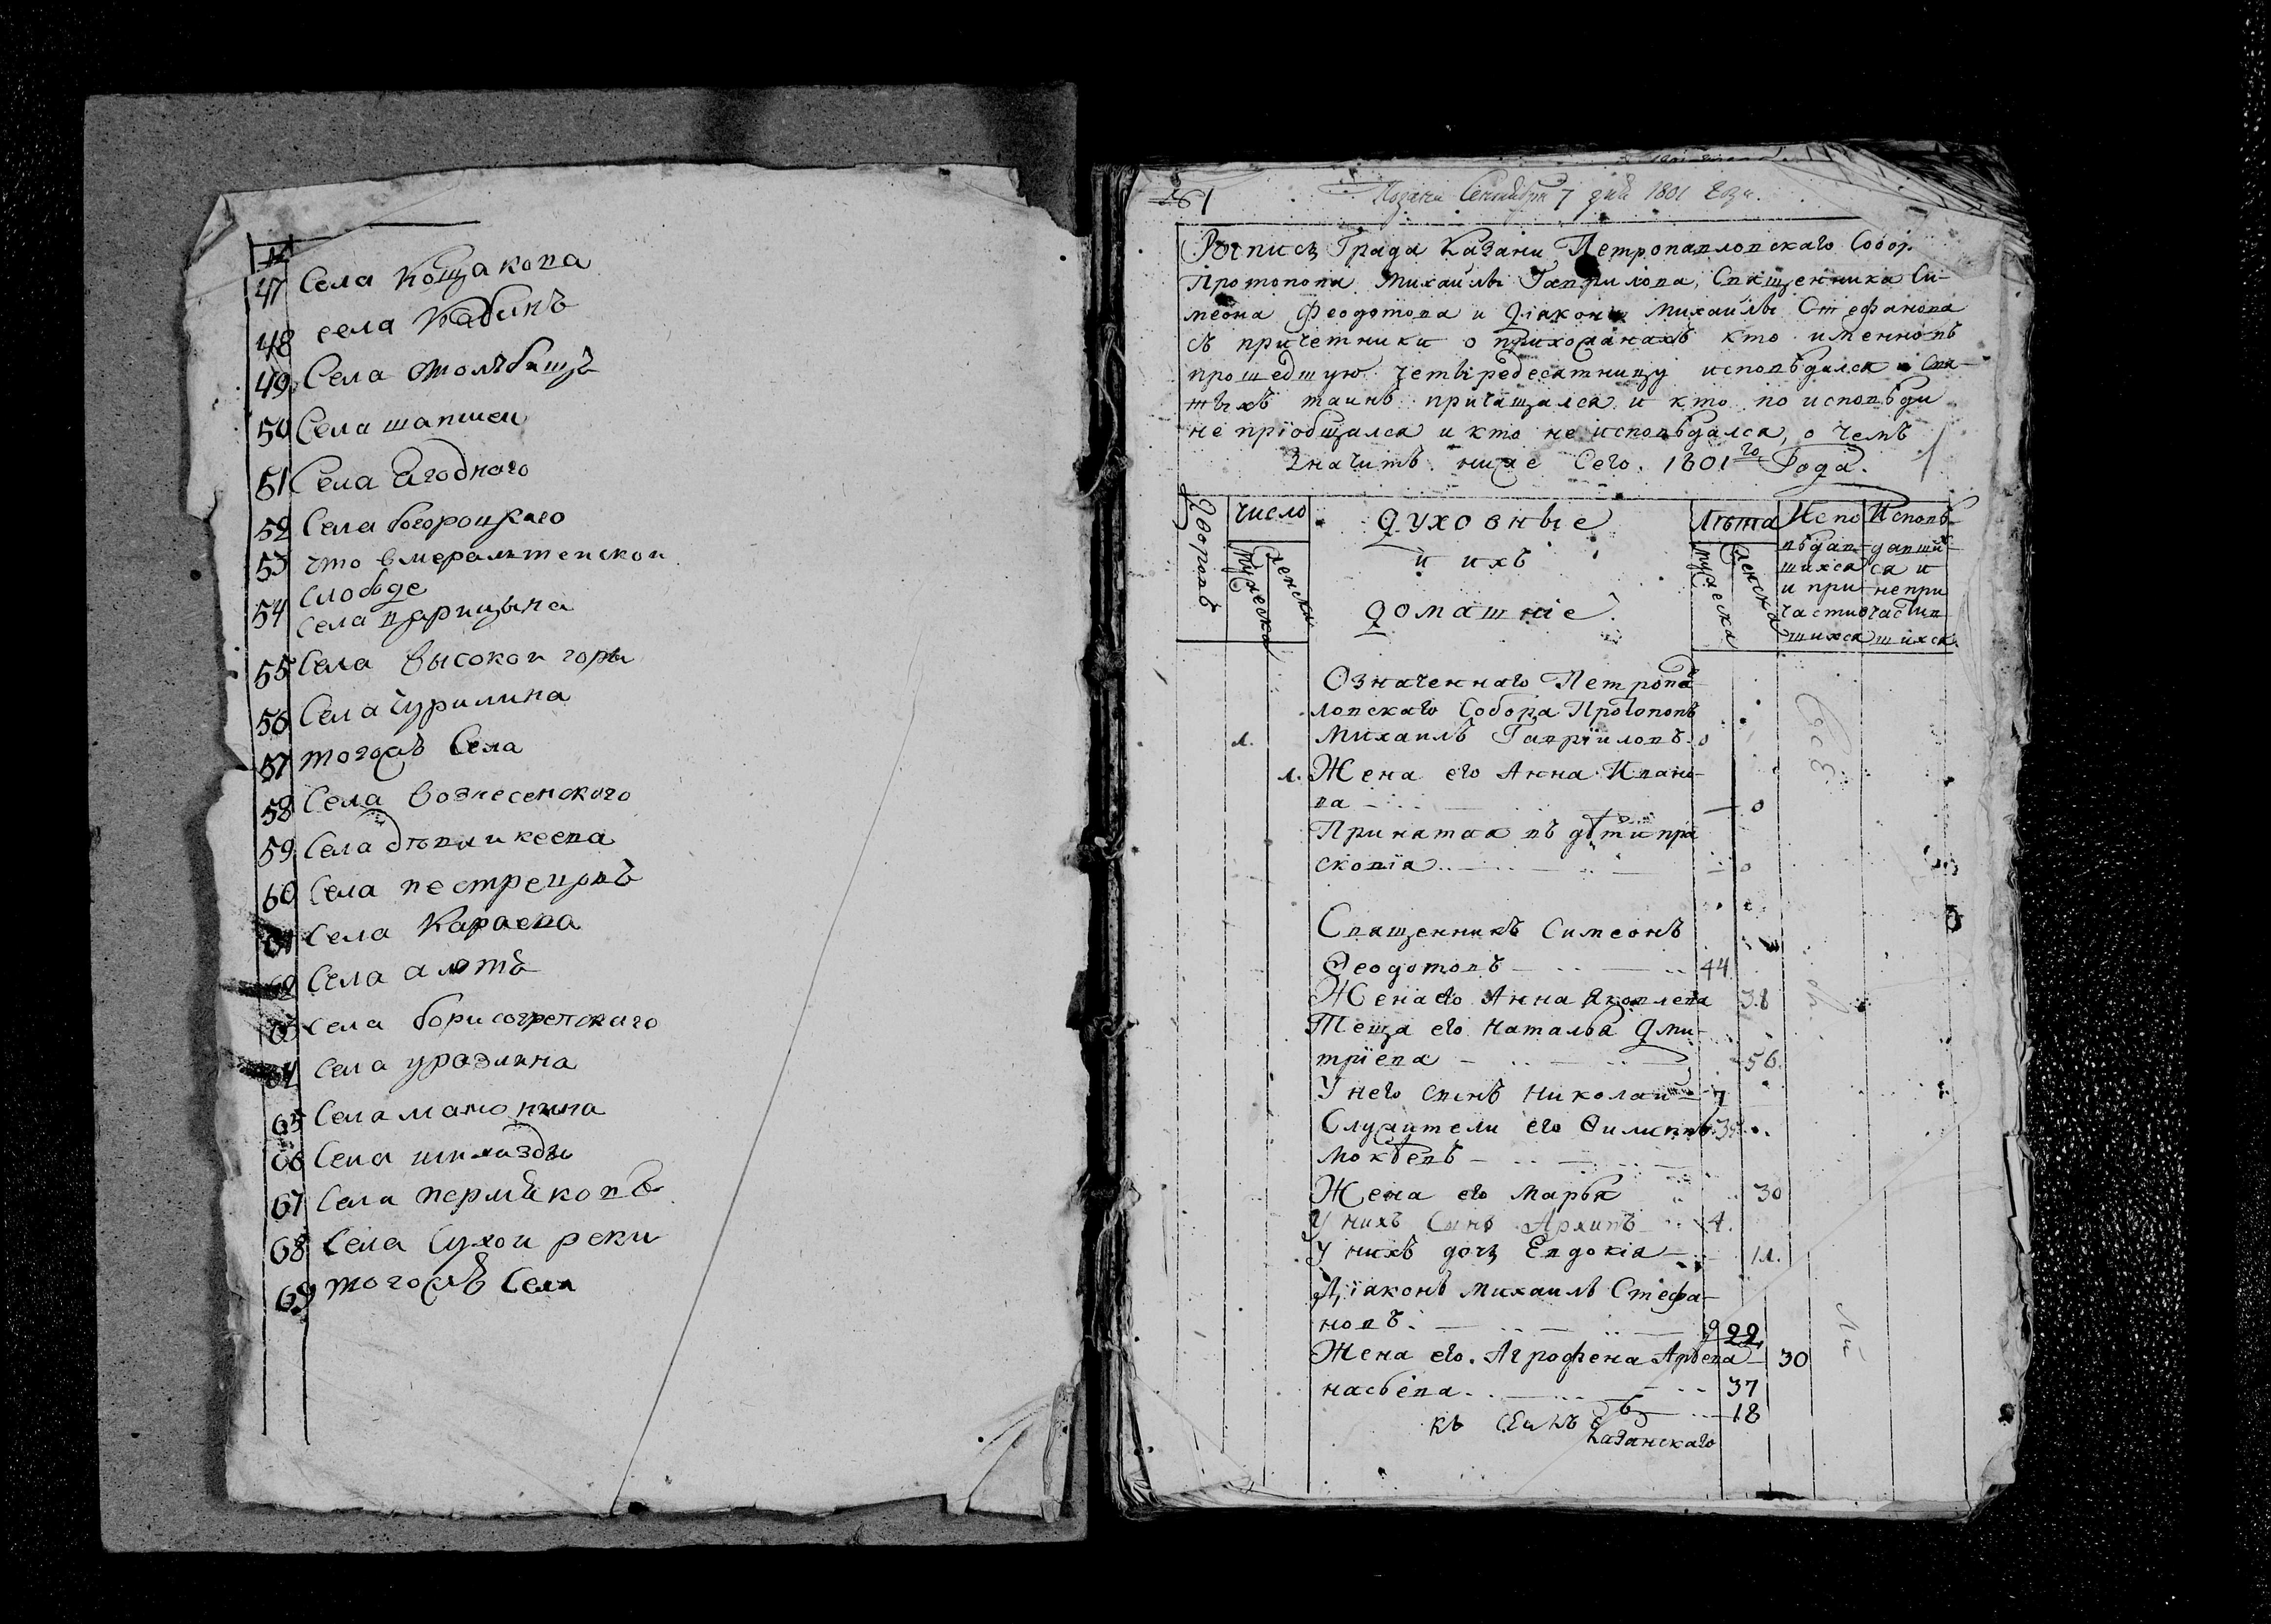 47 Села Кощакова
48 села Кабыкъ
49 Села Столъбищъ
50 Села шапшеи
51 Села Ягоднаго
52 Села богороцкаго
53 что в мералтеискои
слободе
54 Села царицына
55 Села высокои горы
56 Села Чурилина
57 тогожъ Села
58 Села вознесенского
59 Села
60 Села пестрецовъ
61 Села Караева
62 Села алатъ
63 Села борисоглебского
64 Села уразлина
65 Села мамонина
66 Села шигаезды
67 Села пермяковъ
68 Села Сухои реки
69 тогожъ Села
Казань Сентября 7 дня 1801 года.
Роспись Града Казани Петропавловскаго Собор.
Протопопа Михаилы Гаврилова, Священника Си-
меона Феодотова и Діакона Михаилы Стефанова
съ причетники о прихожанахъ кто именно въ
прошедшую четыредесятницу исповѣдался и Свя-
тыхъ таинъ причащался и кто по исповѣди
не пріобщался и кто не исповѣдался, о чемъ
Значитъ ниже Сего. 1801го Года.
Дворовъ
Число
Мужеска
Женски
Духовные
и ихъ
домашніе.
Лѣта
Мужеска
Женска
Испо
вѣдав
шихся
и при
частив
шихся
Исповѣ-
давши
ся и
не при
частив
шихся
Означеннаго Петропа-
ловскаго Собора Протопопъ
Михаилъ Гавріиловъ.
Жена его Анна Ивано-
ва
Принятая въ дѣти Пра
сковія
Священникъ Симеонъ
Феодотовъ 44
Жена его Анна Яковлева 38
Теща его Наталья Дми-
тріева 56.
У него сынъ Николаи 7
Служители его Филиппъ 35
Жена его Марья 30
У нихъ Сынъ Архипъ 4.
У нихъ дочь Евдокіа
Діаконъ Михаилъ Стефа-
новъ. 22
Жена его. Агрофена Афа 30
насьева 37
18
Казанскаго